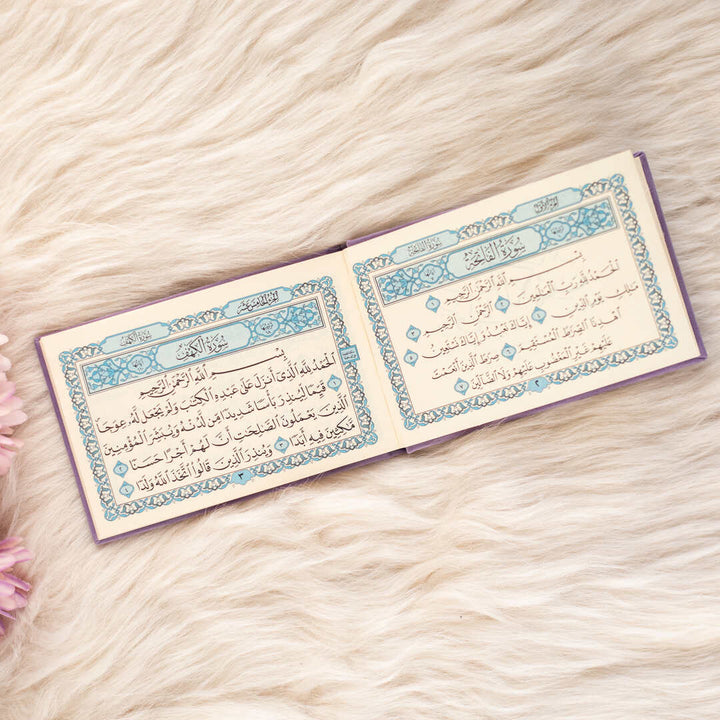 سُورَةُ الفَاتِحَةِ
الجُزْءُ الأَوَّلُ
سُورَةُ الفَاتِحَةِ
بِسْمِ اللَّهِ الرَّحْمَٰنِ الرَّحِيمِ ١
الْحَمْدُ لِلَّهِ رَبِّ الْعَالَمِينَ ٢ الرَّحْمَٰنِ الرَّحِيمِ ٣
مَالِكِ يَوْمِ الدِّينِ ٤ إِيَّاكَ نَعْبُدُ وَإِيَّاكَ نَسْتَعِينُ ٥
اهْدِنَا الصِّرَاطَ الْمُسْتَقِيمَ ٦ صِرَاطَ الَّذِينَ أَنْعَمْتَ
عَلَيْهِمْ غَيْرِ الْمَغْضُوبِ عَلَيْهِمْ وَلَا الضَّالِّينَ ٧
٢
الجُزْءُ الخَامِسَ عَشَرَ
سُورَةُ الكَهْفِ
سُورَةُ الكَهْفِ
بِسْمِ اللَّهِ الرَّحْمَٰنِ الرَّحِيمِ
الْحَمْدُ لِلَّهِ الَّذِي أَنْزَلَ عَلَىٰ عَبْدِهِ الْكِتَٰبَ وَلَمْ يَجْعَلْ لَهُ عِوَجًا
١ قَيِّمًا لِيُنْذِرَ بَأْسًا شَدِيدًا مِنْ لَدُنْهُ وَيُبَشِّرَ الْمُؤْمِنِينَ
الَّذِينَ يَعْمَلُونَ الصَّٰلِحَٰتِ أَنَّ لَهُمْ أَجْرًا حَسَنًا ٢
مَٰكِثِينَ فِيهِ أَبَدًا ٣ وَيُنْذِرَ الَّذِينَ قَالُوا اتَّخَذَ اللَّهُ وَلَدًا ٤
٣